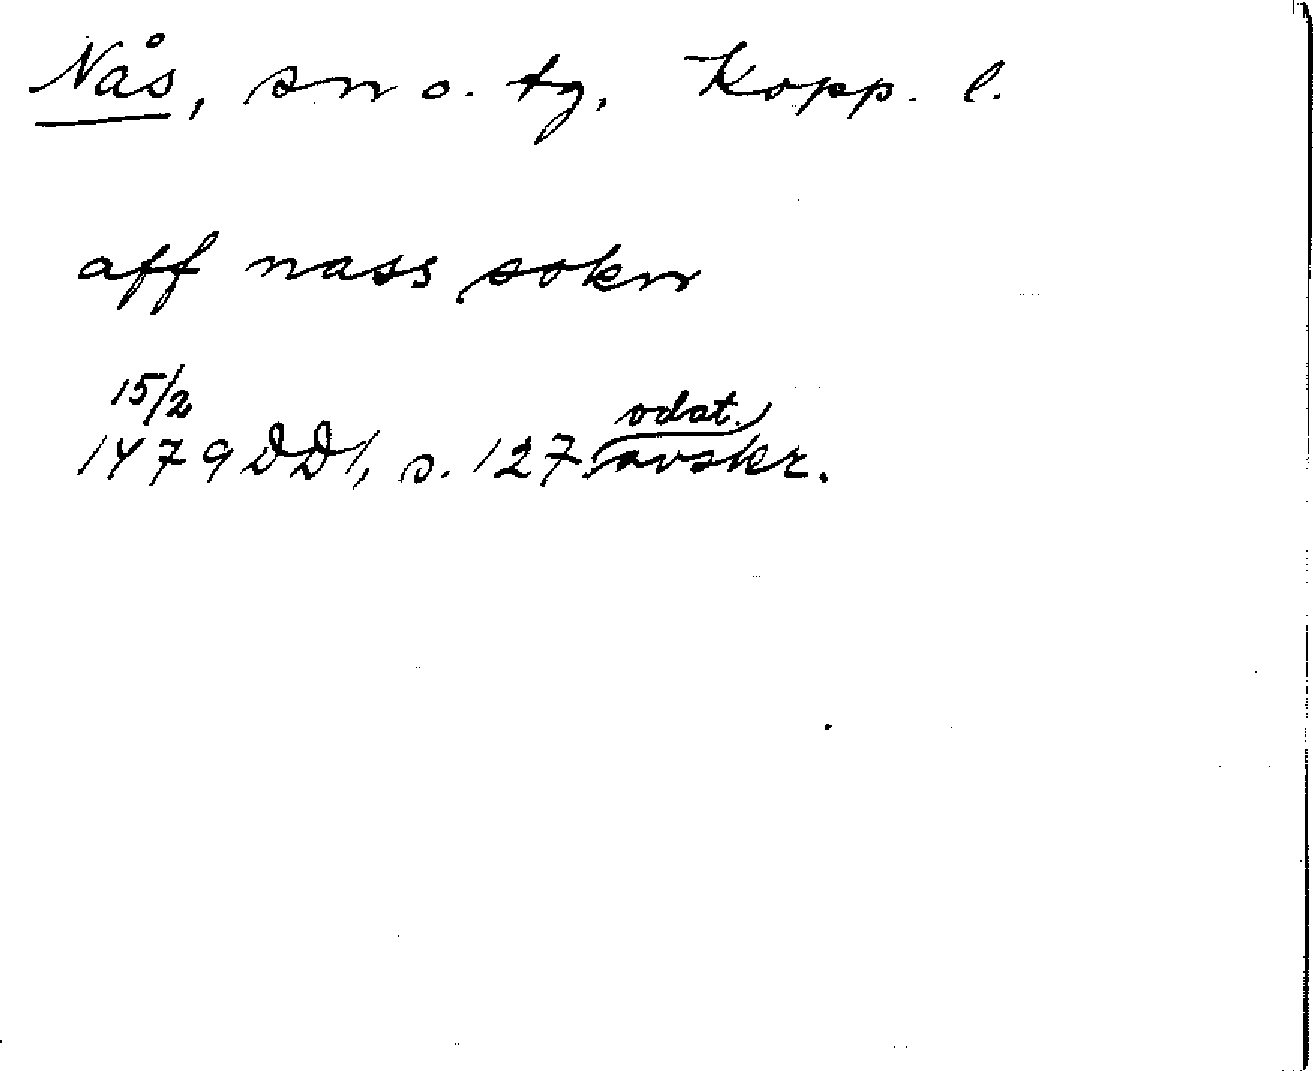 Nås, sn o. tg, Kopp. l.
aff nass sokn
15/2
1479 DD1, s. 127. odat. avskr.